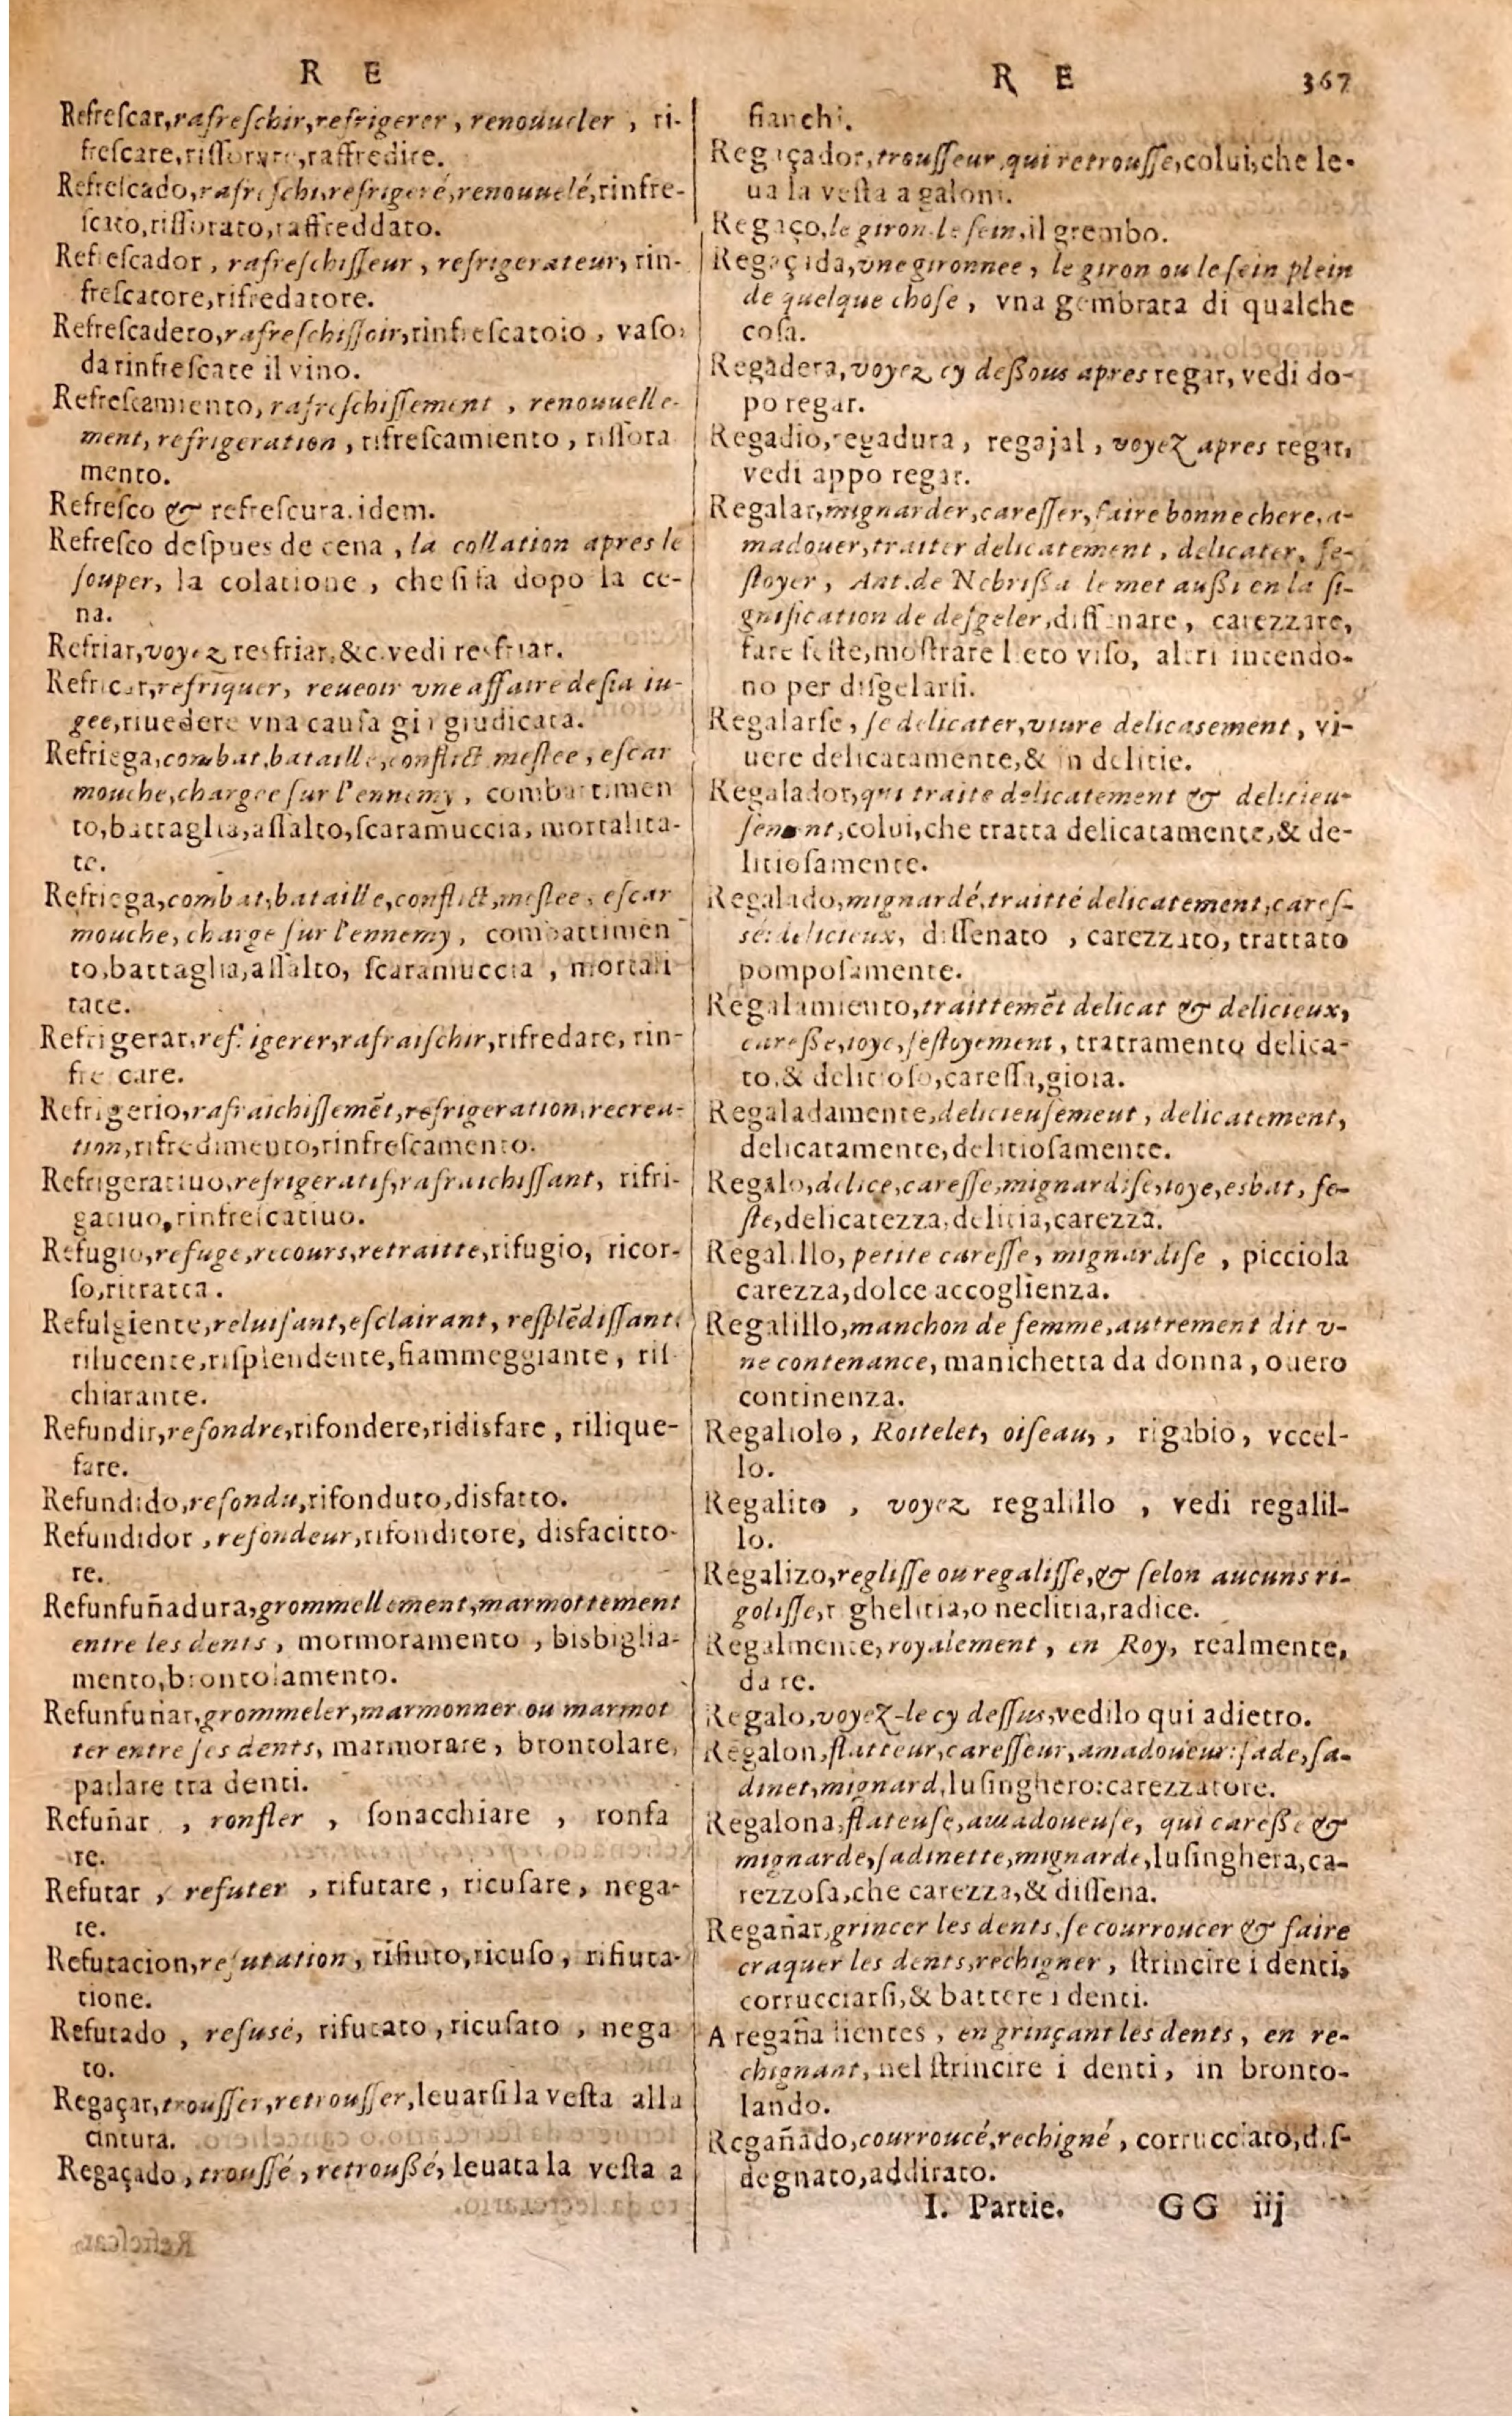 R E
Refreſcar, rafreſchir, refrigerer, renouueler, ri-
freſcare, riſſorare, raffredire.
Refreſcado, rafreſchi, refrigeré, renouuelé, rinfre-
ſcato, riſſorato, raffreddato.
Refreſcador, rafreſchiſſeur, refrigerateur, rin-
freſcatore, rifredatore.
Refreſcadero, rafreſchiſſoir, rinfreſcatoio, vaſo,
da rinfreſcare il vino.
Refreſcamiento, rafreſchiſſement, renouuelle-
ment, refrigeration, rifreſcamiento, riſſora
mento.
Refreſco & refreſcura. idem.
Refreſco deſpues de cena, la collation apres le
ſouper, la colatione, che ſi fa dopo la ce-
na.
Refriar, voyez resfriar, &c. vedi resfriar.
Refricar, refriquer, reueoir vne affaire deſia iu-
gee, riuedere vna cauſa gia giudicata.
Refriega, combat, bataille, conflict, meſlee, eſcar
mouche, chargee ſur l'ennemy, combattimen
to, battaglia, aſſalto, ſcaramuccia, mortalita-
te.
Refriega, combat, bataille, conflict, meſlee, eſcar
mouche, charge ſur l'ennemy, combattimen
to, battaglia, aſſalto, ſcaramuccia, mortali
tate.
Refrigerar, refrigerer, rafraiſchir, rifredare, rin-
freſcare.
Refrigerio, rafraichiſſemẽt, refrigeration, recrea-
tion, rifredimento, rinfreſcamento.
Refrigeratiuo, refrigeratif, rafraichiſſant, rifri-
gatiuo, rinfreſcatiuo.
Refugio, refuge, recours, retraitte, rifugio, ricor-
ſo, ritratta.
Refulgiente, reluiſant, eſclairant, reſplẽdiſſant.
rilucente, riſplendente, fiammeggiante, riſ
chiarante.
Refundir, refondre, rifondere, ridisfare, rilique-
fare.
Refundido, refondu, rifonduto, disfatto.
Refundidor, refondeur, rifonditore, disfacitto-
re.
Refunfuñadura, grommellement, marmottement
entre les dents, mormoramento, bisbiglia-
mento, brontolamento.
Refunfuñar, grommeler, marmonner ou marmot
ter entre ſes dents, marmorare, brontolare,
parlare tra denti.
Refuñar, ronfler, ſonacchiare, ronfa
re.
Refutar, refuter, rifutare, ricuſare, nega-
re.
Refutacion, refutation, rifiuto, ricuſo, rifiuta-
tione.
Refutado, refusé, rifutato, ricuſato, nega
to.
Regaçar, trouſſer, retrouſſer, leuarſi la veſta alla
cintura.
Regaçado, trouſſé, retroußé, leuata la veſta a
R E 367
fianchi.
Regaçador, trouſſeur, qui retrouſſe, colui, che le-
ua la veſta a galoni.
Regaço, le giron, le ſein, il grembo.
Regaçada, vne gironnee, le giron ou le ſein plein
de quelque choſe, vna gembrata di qualche
coſa.
Regadera, voyez cy deßous apres regar, vedi do-
po regar.
Regadio, regadura, regajal, voyez apres regar,
vedi appo regar.
Regalar, mignarder, careſſer, faire bonne chere, a-
madouer, traitter delicatement, delicater, fe-
ſtoyer, Ant. de Nebrißa le met außi en la ſi-
gnification de deſgeler, diſſenare, carezzare,
fare feſte, moſtrare lieto viſo, altri intendo-
no per diſgelarſi.
Regalarſe, ſe delicater, viure delicasement, vi-
uere delicatamente, & in delitie.
Regalador, qui traite delicatement & delicieu-
ſement, colui, che tratta delicatamente, & de-
litioſamente.
Regalado, mignardé, traitté delicatement, careſ-
sé: delicieux, diſſenato, carezzato, trattato
pompoſamente.
Regalamiento, traittemẽt delicat & delicieux,
careße, ioye, feſtoyement, trattamento delica-
to, & delitioſo, careſſa, gioia.
Regaladamente, delicieuſement, delicatement,
delicatamente, delitioſamente.
Regalo, delice, careſſe, mignardiſe, ioye, esbat, fe-
ſte, delicatezza, delitia, carezza.
Regalillo, petite careſſe, mignardiſe, picciola
carezza, dolce accoglienza.
Regalillo, manchon de femme, autrement dit v-
ne contenance, manichetta da donna, ouero
continenza.
Regaliolo, Roitelet, oiſeau,, rigabio, vccel-
lo.
Regalito, voyez regalillo, vedi regalil-
lo.
Regalizo, regliſſe ou regaliſſe, & ſelon aucuns ri-
goliſſe, r ghelitia, o neclitia, radice.
Regalmente, royalement, en Roy, realmente,
da re.
Regalo, voyez-le cy deſſus, vedilo qui adietro.
Regalon, flatteur, careſſeur, amadoueur: ſade, ſa-
dinet, mignard, luſinghero: carezzatore.
Regalona, flateuſe, amadoueuſe, qui careße &
mignarde, ſadinette, mignarde, luſinghera, ca-
rezzoſa, che carezza, & diſſena.
Regañar, grincer les dents, ſe courroucer & faire
craquer les dents, rechigner, ſtrincire i denti,
corrucciarſi, & battere i denti.
A regaña dientes, en grinçant les dents, en re-
chignant, nel ſtrincire i denti, in bronto-
lando.
Regañado, courroucé, rechigné, corrucciato, diſ-
degnato, addirato.
I. Partie. GG iij